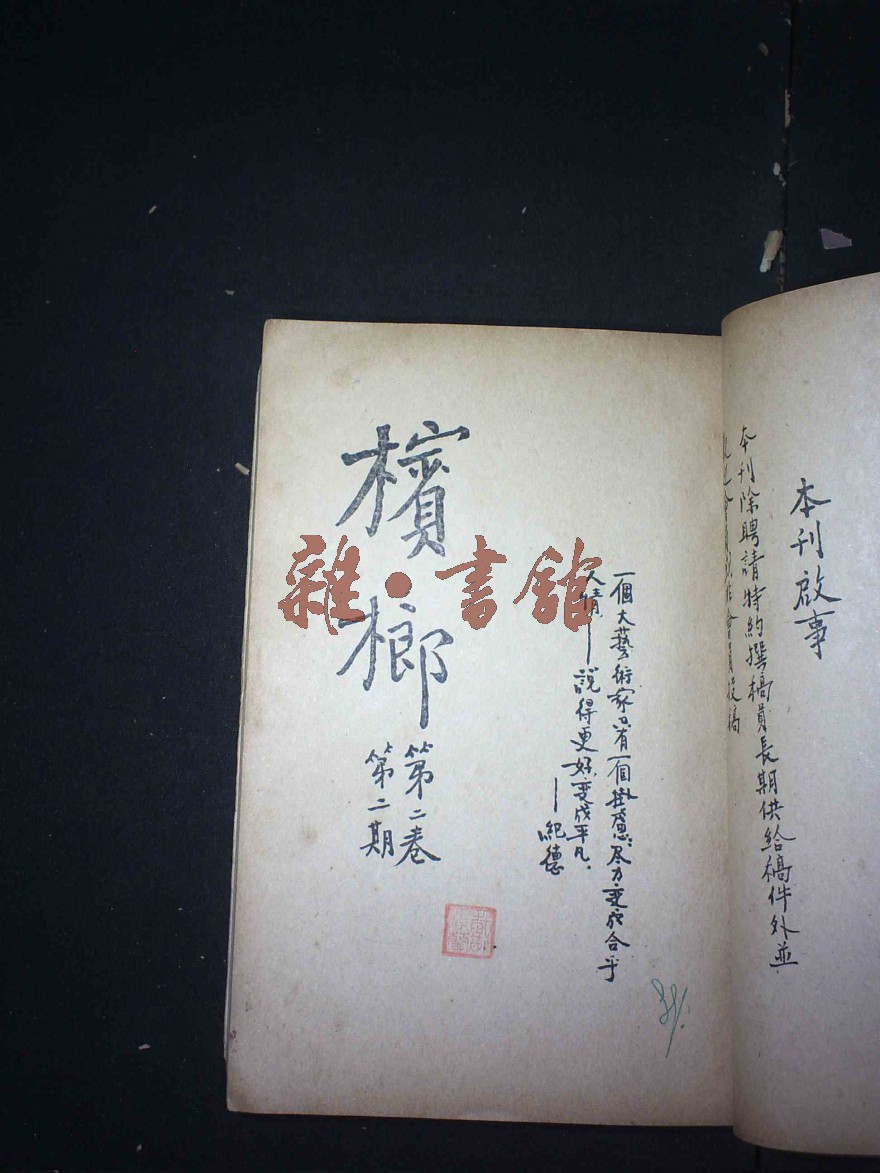 本刊啟事
本刊除聘請特約撰稿員長期供給稿件外並
一個大藝術家只有一個掛慮：尽力变成合乎
人情——說得更好，变成平凡．
——紀德
檳榔
第二卷
第二期
雜·書館